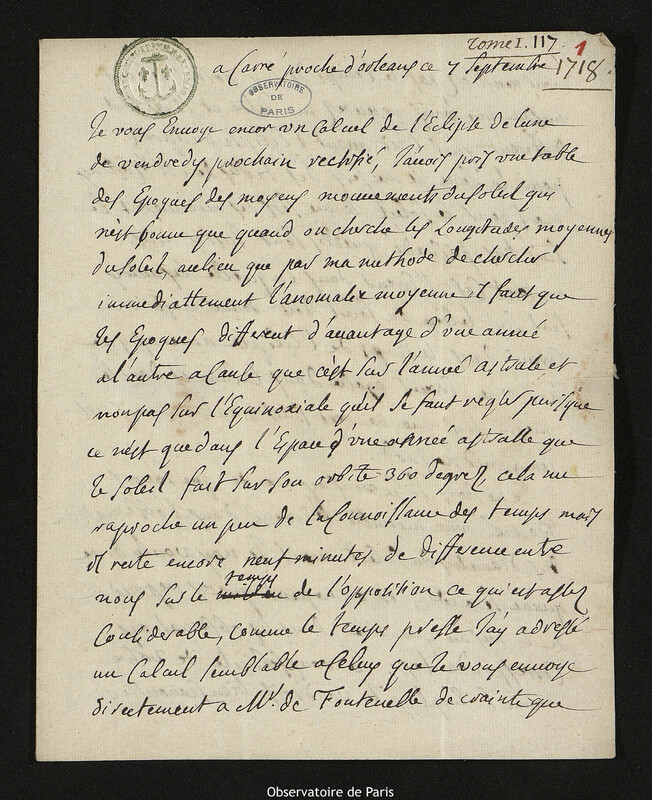 Tome I. 117. 1
a Carré proche d'orleans ce 7 Septembre 1718.
OBSERVATOIRE
DE
PARIS
Je vous Envoye encor un Calcul de l'Eclipse de lune
de vendredy prochain rectifié, J'avois pris une table
des Epoques des moyens mouvements du Soleil qui
n'est bonne que quand on cherche les Longitudes moyennes
du Soleil, aulieu que par ma methode de chercher
immediattement l'anomalie moyenne il faut que
les Epoques different d'avantage d'une année
a l'autre a Cause que c'est sur l'année astrale, et
non pas sur l'Equinoxiale qu'il se faut regler puisque
ce n'est que dans l'Espace d'une année astralle que
le Soleil fait sur son orbite 360 degrez, cela me
raproche un peu de la Connoissance des temps mais
il reste encore neuf minutes de difference entre
nous sur le temps de l'opposition ce qui est assez
Considerable, comme le temps presse J'ay adressé
un Calcul semblable a Celuy que Je vous envoye
directement a Mr. de Fontenelle de crainte que
Observatoire de Paris